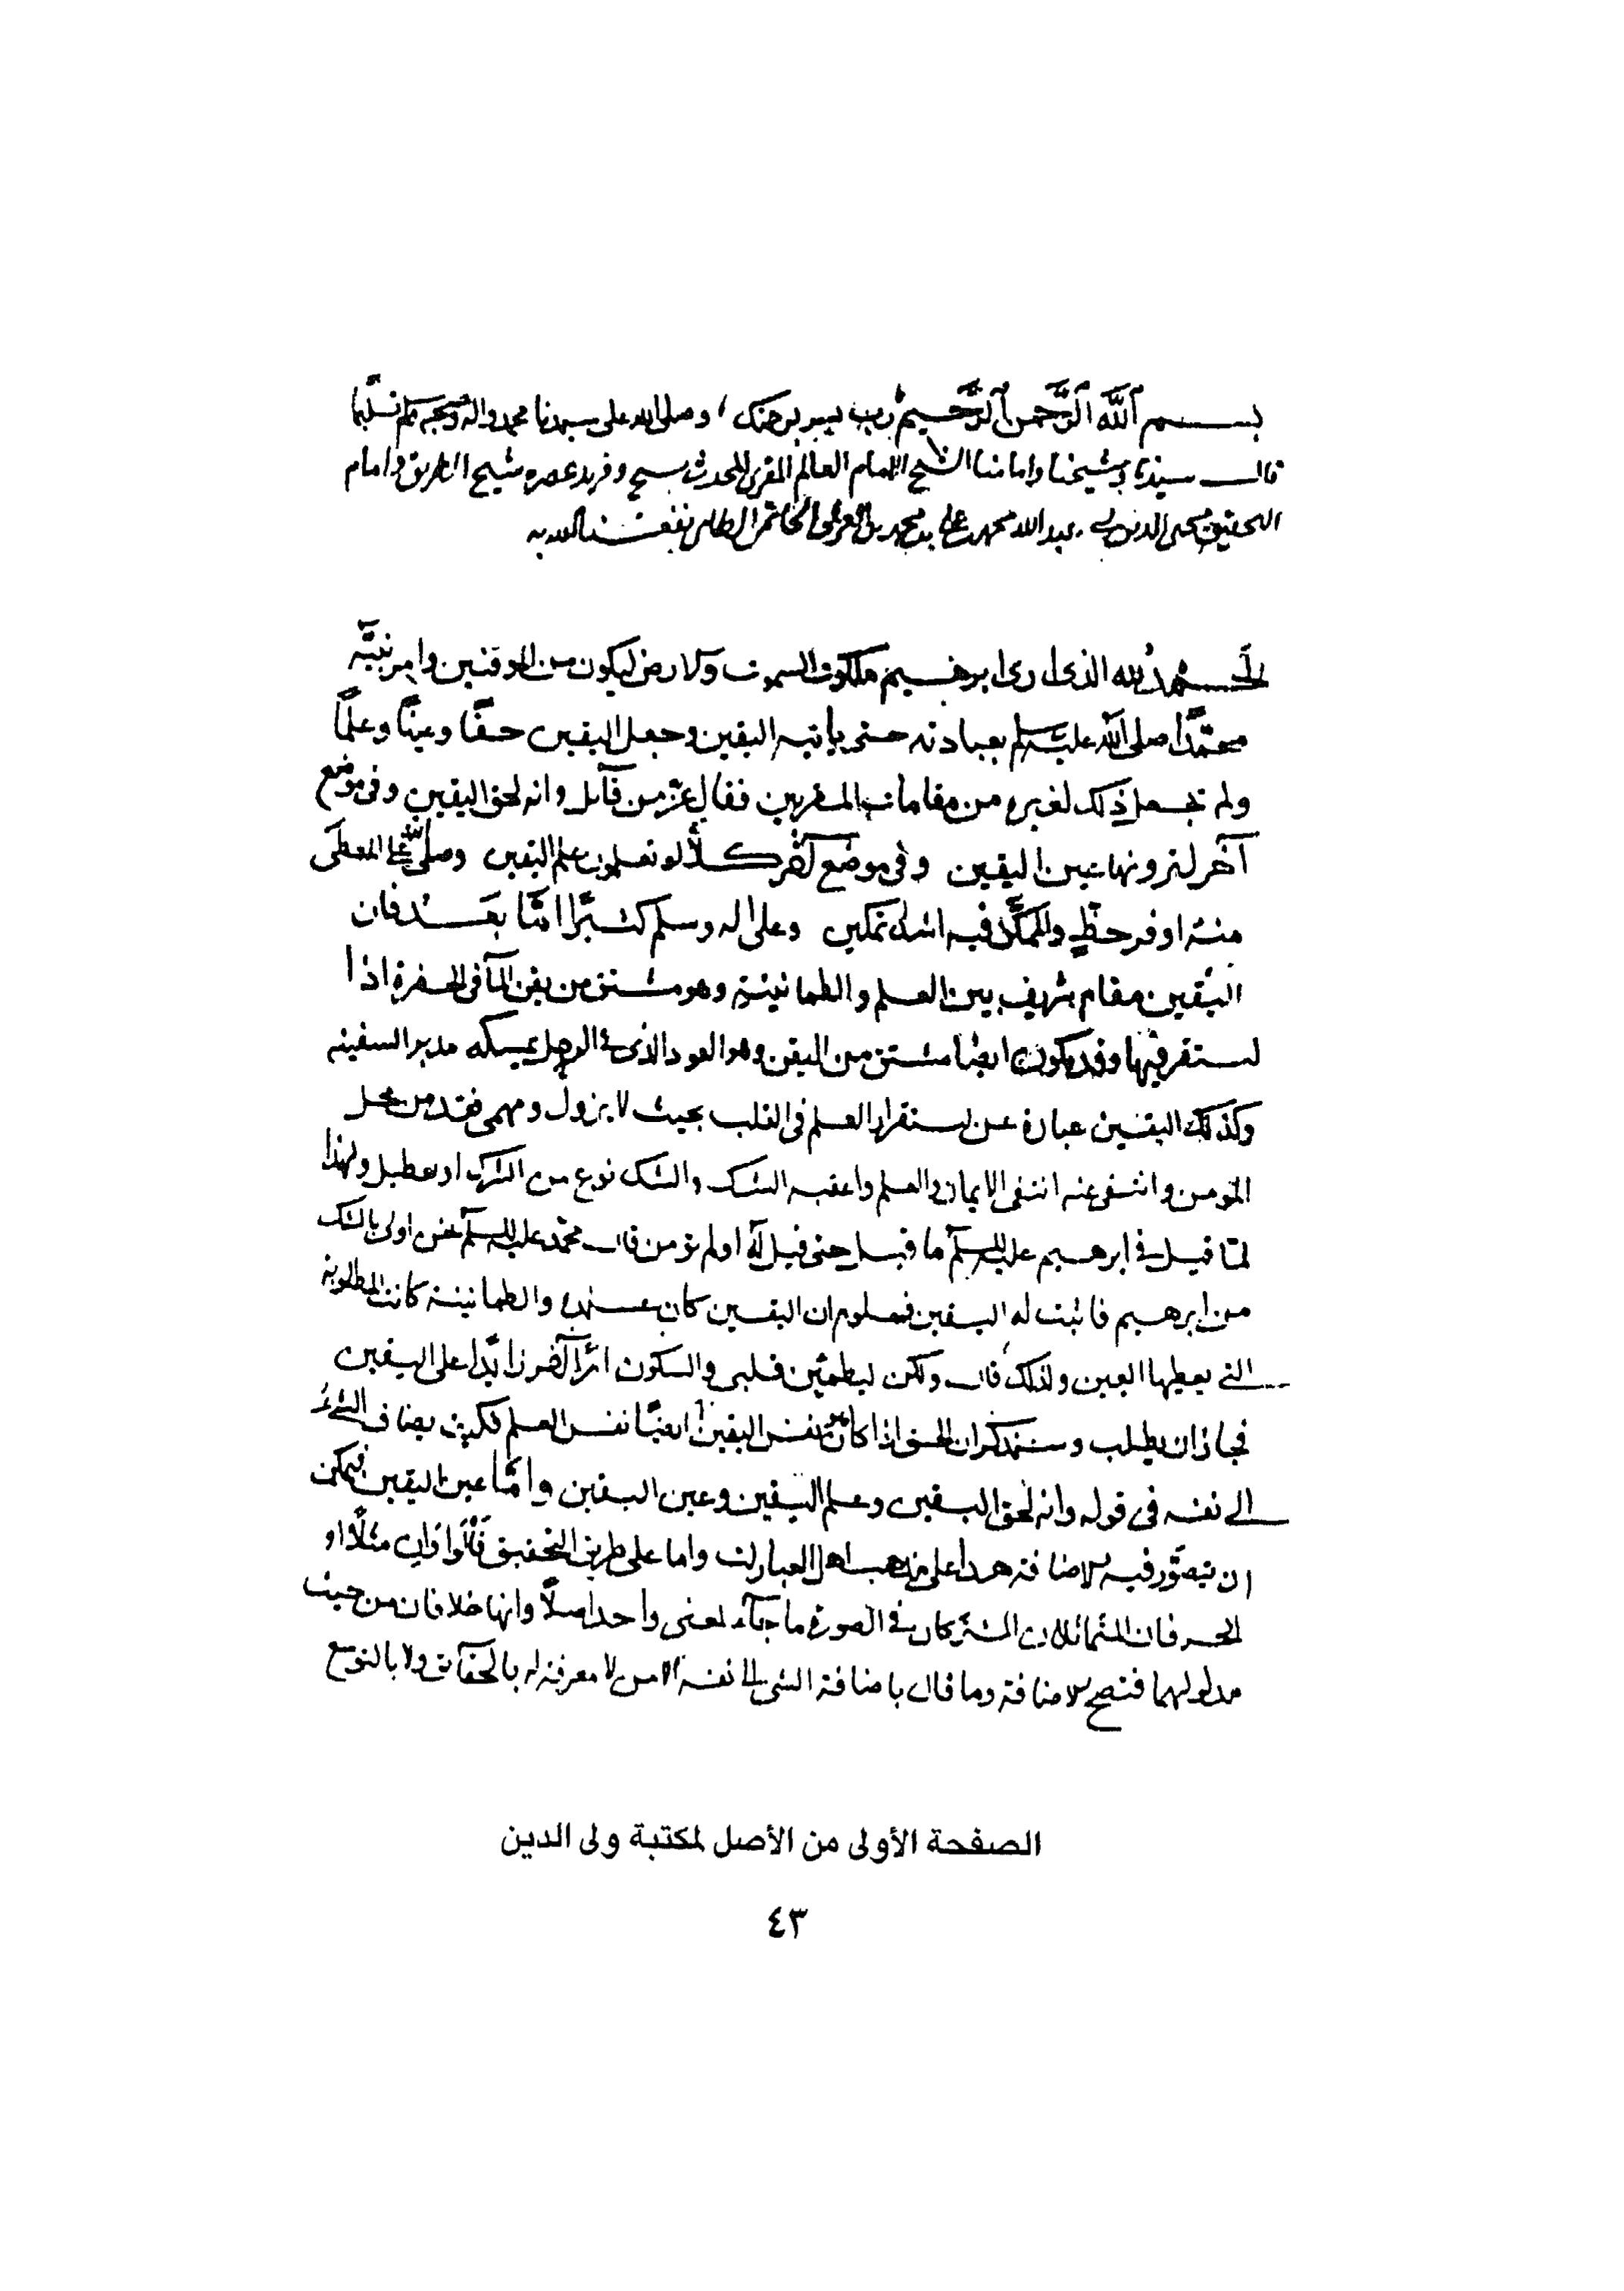 بسم الله الرحمن الرحيم رب يسر برحمتك وصلى الله على سيدنا محمد واله وصحبه وسلم تسليما
قال سيدنا وشيخنا وامامنا الشيخ الامام العالم المقرى المحدث وفريد عصره شيخ الطريق وامام
التحقيق محيى الدين عبد الله محمد بن على بن محمد بن العربى الحاتمى الطاى نفعنا الله به
الحمد لله الذى ارى ابرهيم ملكوت السموت والارض ليكون من الموقنين وامر نبيّه
محمّدا صلى الله عليه وسلم بعبادته حتى يأتيه اليقين وجعل اليقين حقّا وعينا وعلما
ولم يجعل ذلك لغيره من مقامات المقربين فقال عزّ من قآئل وانه لحق اليقين وفى موضع
آخر لترونها عين اليقين وفى موضع آخر كلّا لو تعلمون علم اليقين وصلى الله على المعطى
منه اوفر حظّ والممكّن فيه اشد تمكين وعلى اله وسلم كثيرا امّا بعد فان
اليقين مقام شريف بين العلم والطمانينة وهو مشتق من يقن المآ فى الحفرة اذا
استقر فيها وقد يكون ايضا مشتق من اليقن وهو العود الذى فى الرجل يمسكه مدبر السفينه
وكذلك اليقين عبارة عن استقرار العلم فى القلب بحيث لا يزول ومهمى فقد من محل
المومن وانتفى عنه انتفى الايمان والعلم واعقبه الشك والشك نوع من الشرك او تعطيل ولهذا
لمّا قيل فى ابرهيم عليه السلم ما قيل حتى قيل له اولم تومن قال محمّد عليه السلم نحن اولى بالشك
من ابرهيم فاثبت له اليقين فمعلوم ان اليقين كان عنده والطمانينة كانت المطلوبة
التى يعطيها العين ولذلك قال ولكن ليطمئن قلبى والسكون امر آخر زايد على اليقين
فجاز ان يطلب وسنذكر ان الحق اذا كان هو نفس اليقين ايضا نفس العلم فكيف يضاف الشىء
الى نفسه فى قوله وانه لحق اليقين وعلم اليقين وعين اليقين وامّا عين اليقين فيمكن
ان يتصوّر فيه الاضافة هذا على مذهب اهل العبارات واما على طريق التحقيق فلو توافرا مثلا او
الحد فان المتماثلان المشتركان فى الصورة ما جآء لمعنى واحد اصلا وانها خلافان من حيث
مدلولهما فتصح الاضافة وما قال باضافة الشى الى نفسه الا من لا معرفة له بالحقآئق ولا بالتوسع
الصفحة الأولى من الأصل لمكتبة ولى الدين
٤٣